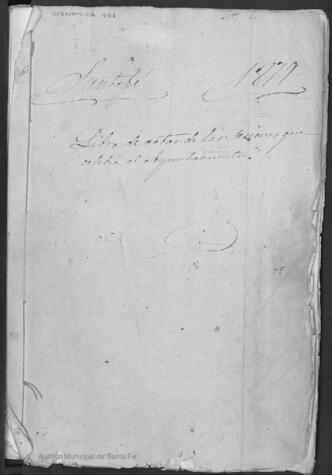 SIGNATURA
Santafé 1879
Libro de actas de las sesiones que
celebra el Ayuntamiento
Archivo Municipal de Santa Fe